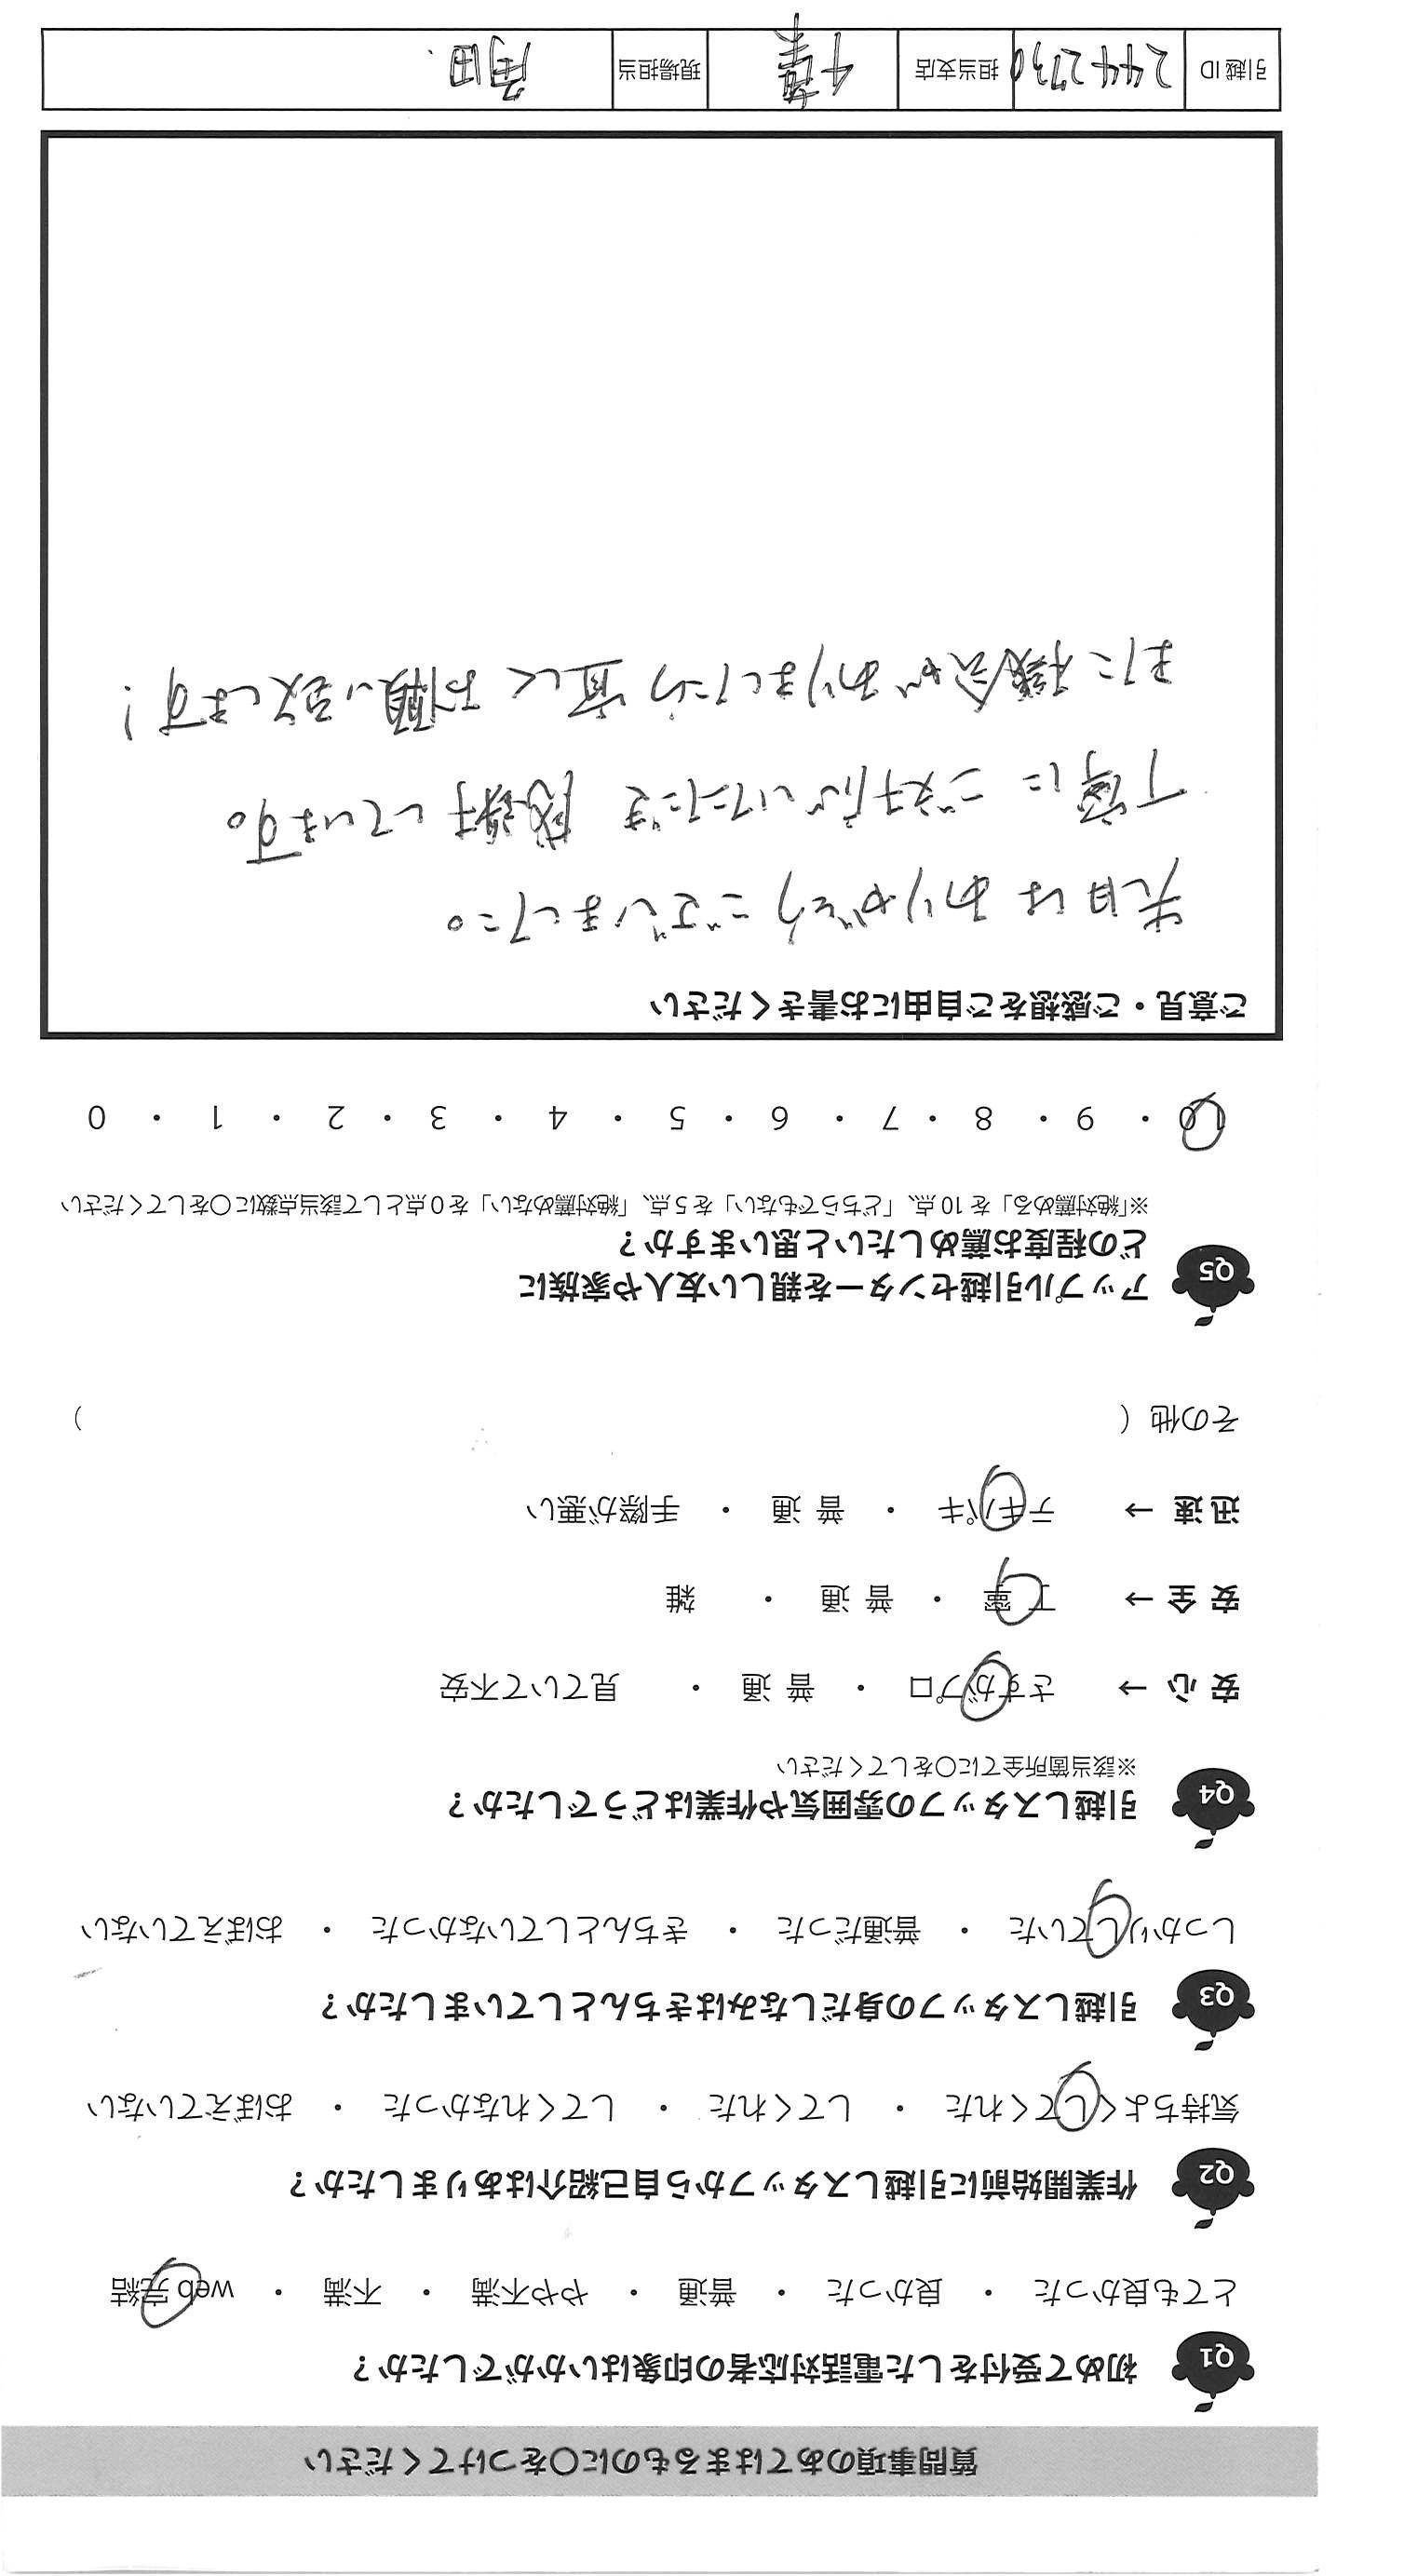 質問事項のあてはまるものに〇をつけてください
Q1 初めて受付をした電話対応者の印象はいかがでしたか？
とても良かった ・ 良かった ・ 普通 ・ やや不満 ・ 不満 ・ web 完結
Q2 作業開始前に引越しスタッフから自己紹介はありましたか？
気持ちよくしてくれた ・ してくれた ・ してくれなかった ・ おぼえていない
Q3 引越しスタッフの身だしなみはきちんとしていましたか？
しっかりしていた ・ 普通だった ・ きちんとしていなかった ・ おぼえていない
Q4 引越しスタッフの雰囲気や作業はどうでしたか？
※該当箇所全てに〇をしてください
安 心 → さすがプロ ・ 普 通 ・ 見ていて不安
安 全 → 丁 寧 ・ 普 通 ・ 雑
迅 速 → テキパキ ・ 普 通 ・ 手際が悪い
その他（ ）
Q5 アップル引越センターを親しい友人や家族に
どの程度お薦めしたいと思いますか？
※「絶対薦める」を 10 点、「どちらでもない」を 5 点、「絶対薦めない」を 0 点として該当点数に〇をしてください
10 ・ 9 ・ 8 ・ 7 ・ 6 ・ 5 ・ 4 ・ 3 ・ 2 ・ 1 ・ 0
ご意見・ご感想をご自由にお書きください
先日はありがとうございました。
丁寧にご対応いただき 感謝しています。
また機会がありましたら宜しくお願い致します！
引越 ID 2442730 担当支店 千葉 現場担当 角田